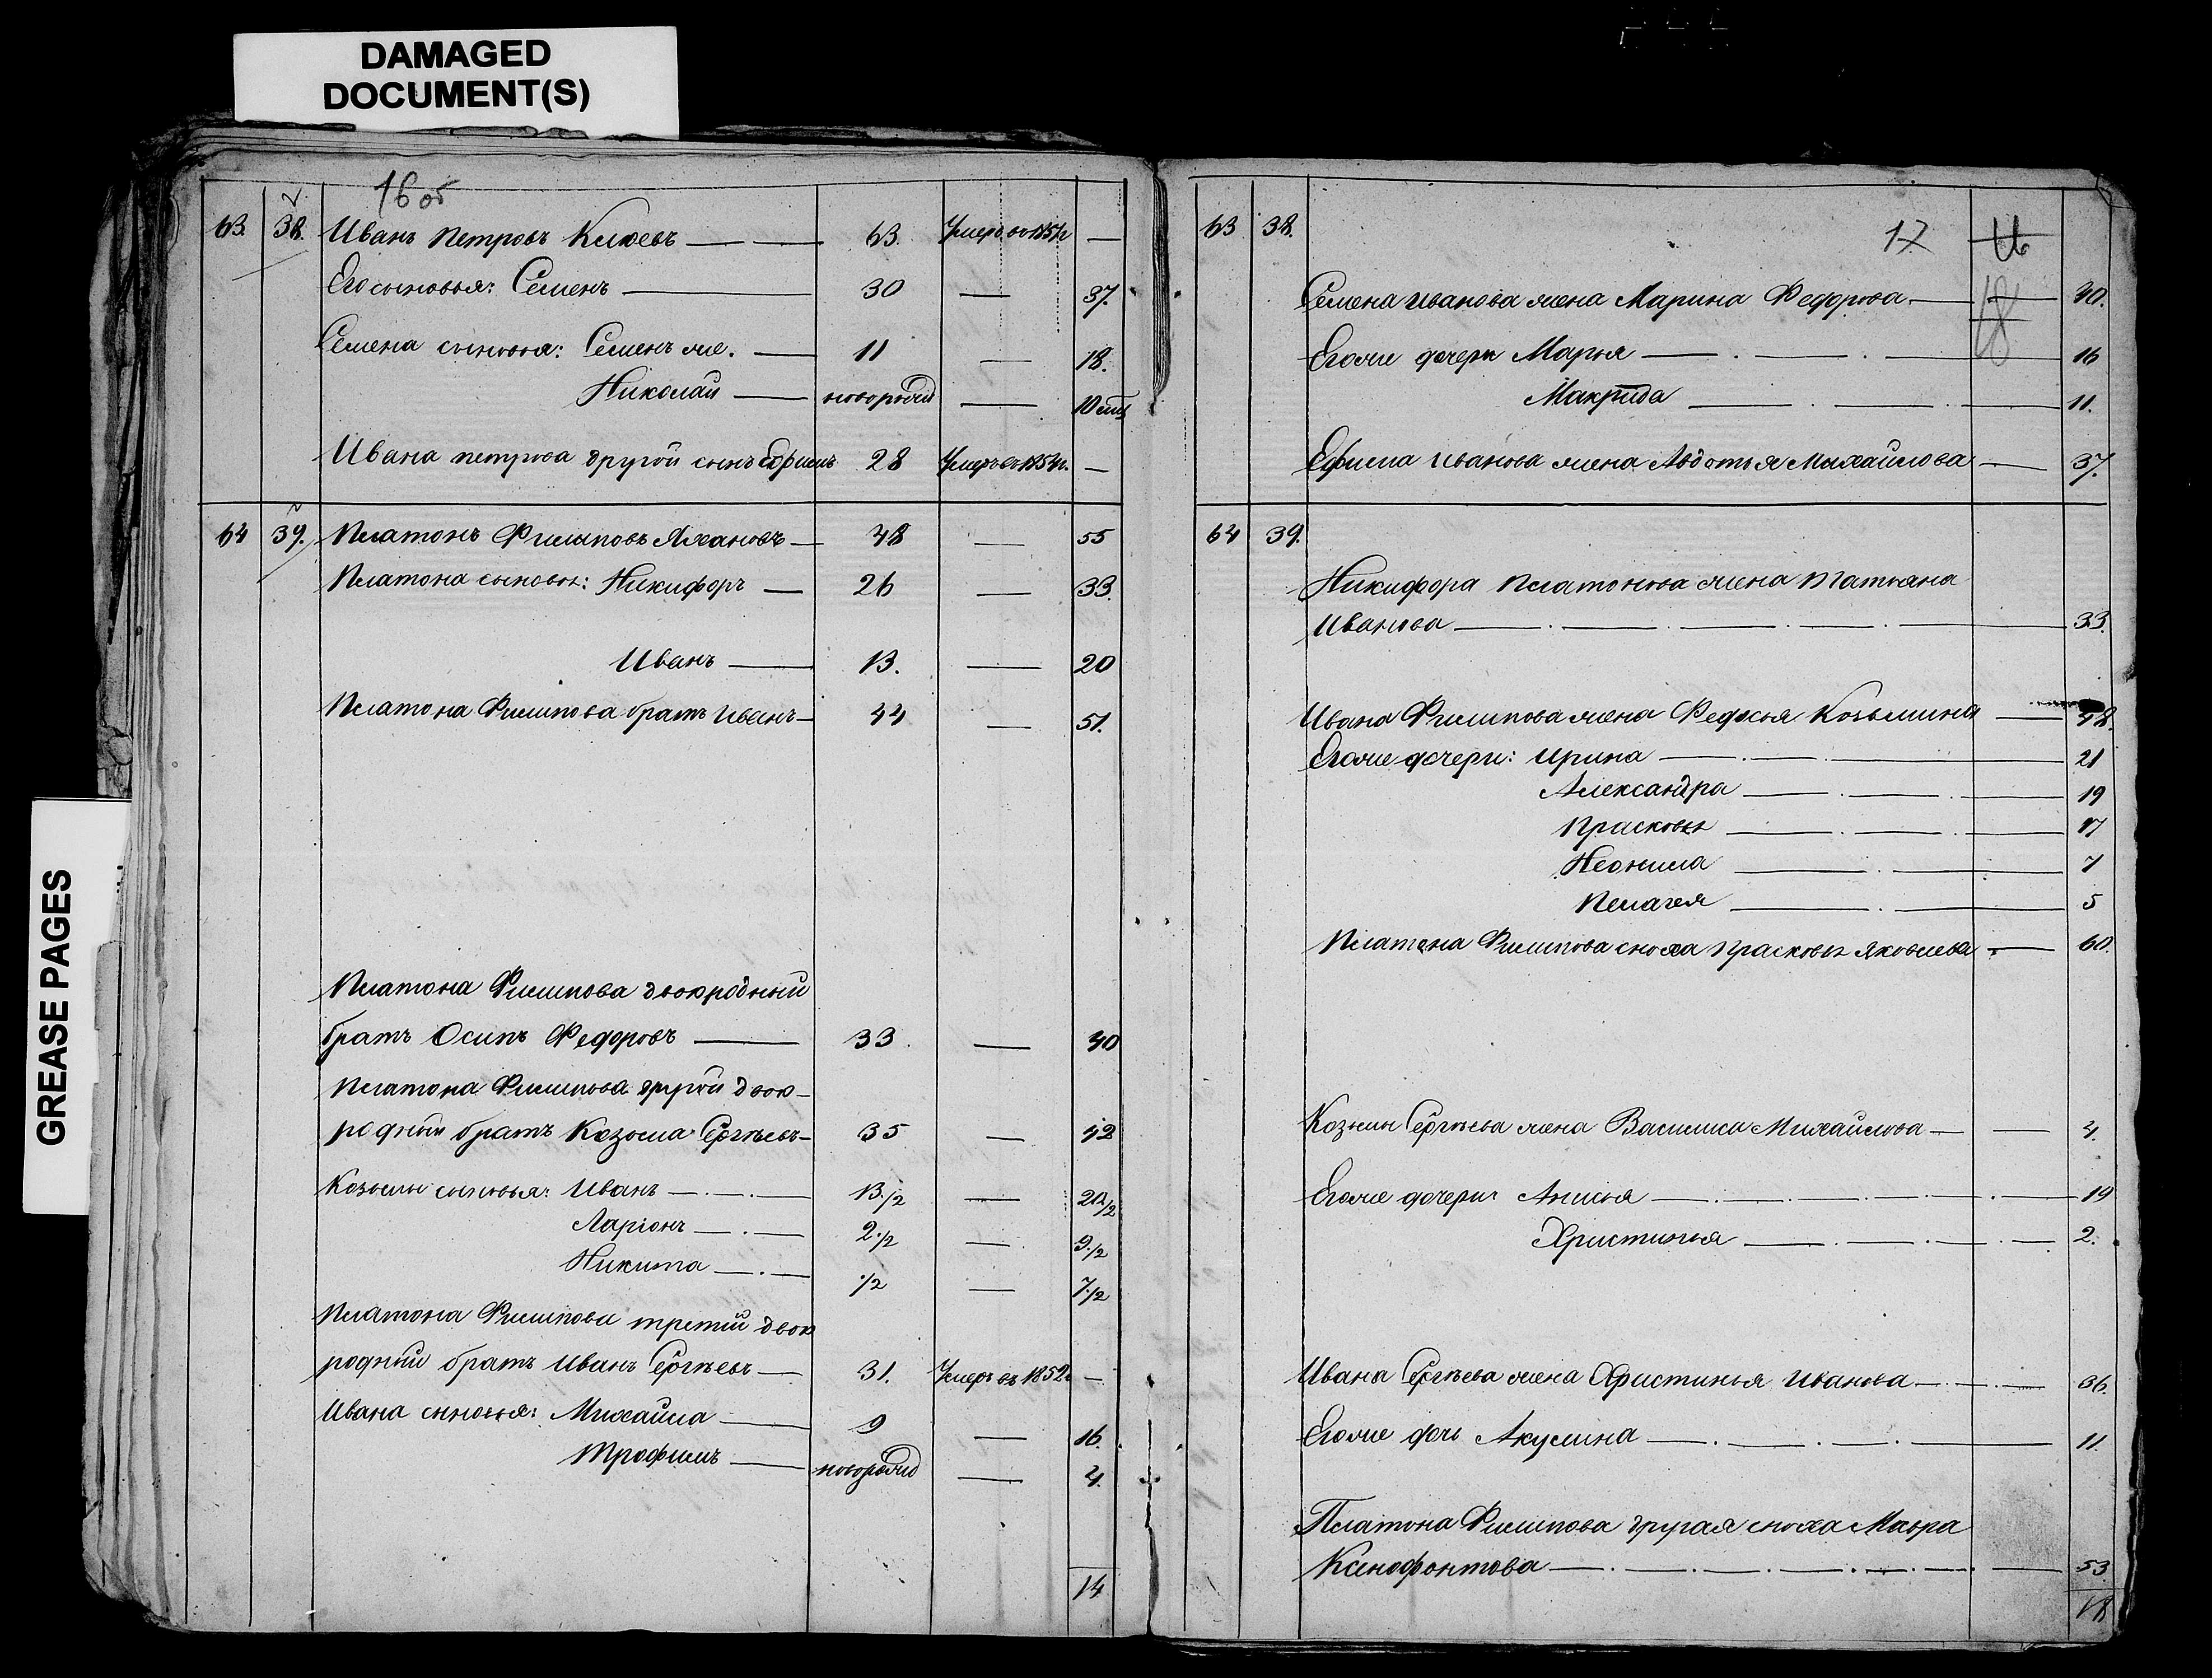 DAMAGED
DOCUMENT(S)
GREASE PAGES
16 об
63. 38. Иванъ Петровъ Клюевъ — 63. Умеръ въ 185 г —
Его сыновья: Семенъ — 30 — 37.
Семена сыновья: Семенъ же. — 11 — 18.
Николай — новорожд — 10 мц
Ивана Петрова другой сынъ Ефимъ 28 Умеръ въ 1854 г. —
64 39. Платонъ Филиповъ — 48 — 55
Платона сыновья: Никифоръ — 26 — 33.
Иванъ — 13. — 20
Платона Филипова братъ Иванъ — 44 — 51.
Платона Филипова двоюродный
братъ Осипъ Федоровъ — 33. — 40
Платона Филипова другой двою-
родный братъ Козьма Сергѣевъ — 35 — 42
Козьмы сыновья: Иванъ — 13.½ — 20.½
Ларіонъ — 2.½ — 9.½
Никита — .½ — 7.½
Платона Филипова третій двою
родный братъ Иванъ Сергѣевъ — 31. Умеръ въ 1852 г —
Ивана сыновья: Михайла — 9 — 16.
Трофимъ — новорожд — 4.
14
17 16
18
63 38.
Семена Иванова жена Марина Федорова — 40.
Его же дочери Марья — 16
Макрида — 11.
Ефима Иванова жена Авдотья Михайлова — 37.
64 39.
Никифора Платонова жена Татьяна
Иванова — 33.
Ивана Филипова жена Федосья Козьмина — 48.
Его же дочери: Ирина — 21
Александра — 19
Прасковья — 17
Неонила — 7
Пелагея — 5
Платона Филипова сноха Прасковья Яковлева — 60.
Козьмы Сергѣева жена Василиса Михайлова — 4.
Его же дочери: Анисья — 19
Христинья — 2.
Ивана Сергѣева жена Христинья Иванова — 36.
Его же дочь Акулина — 11.
Платона Филипова другая сноха Мавра
Ксенофонтова — 53.
18